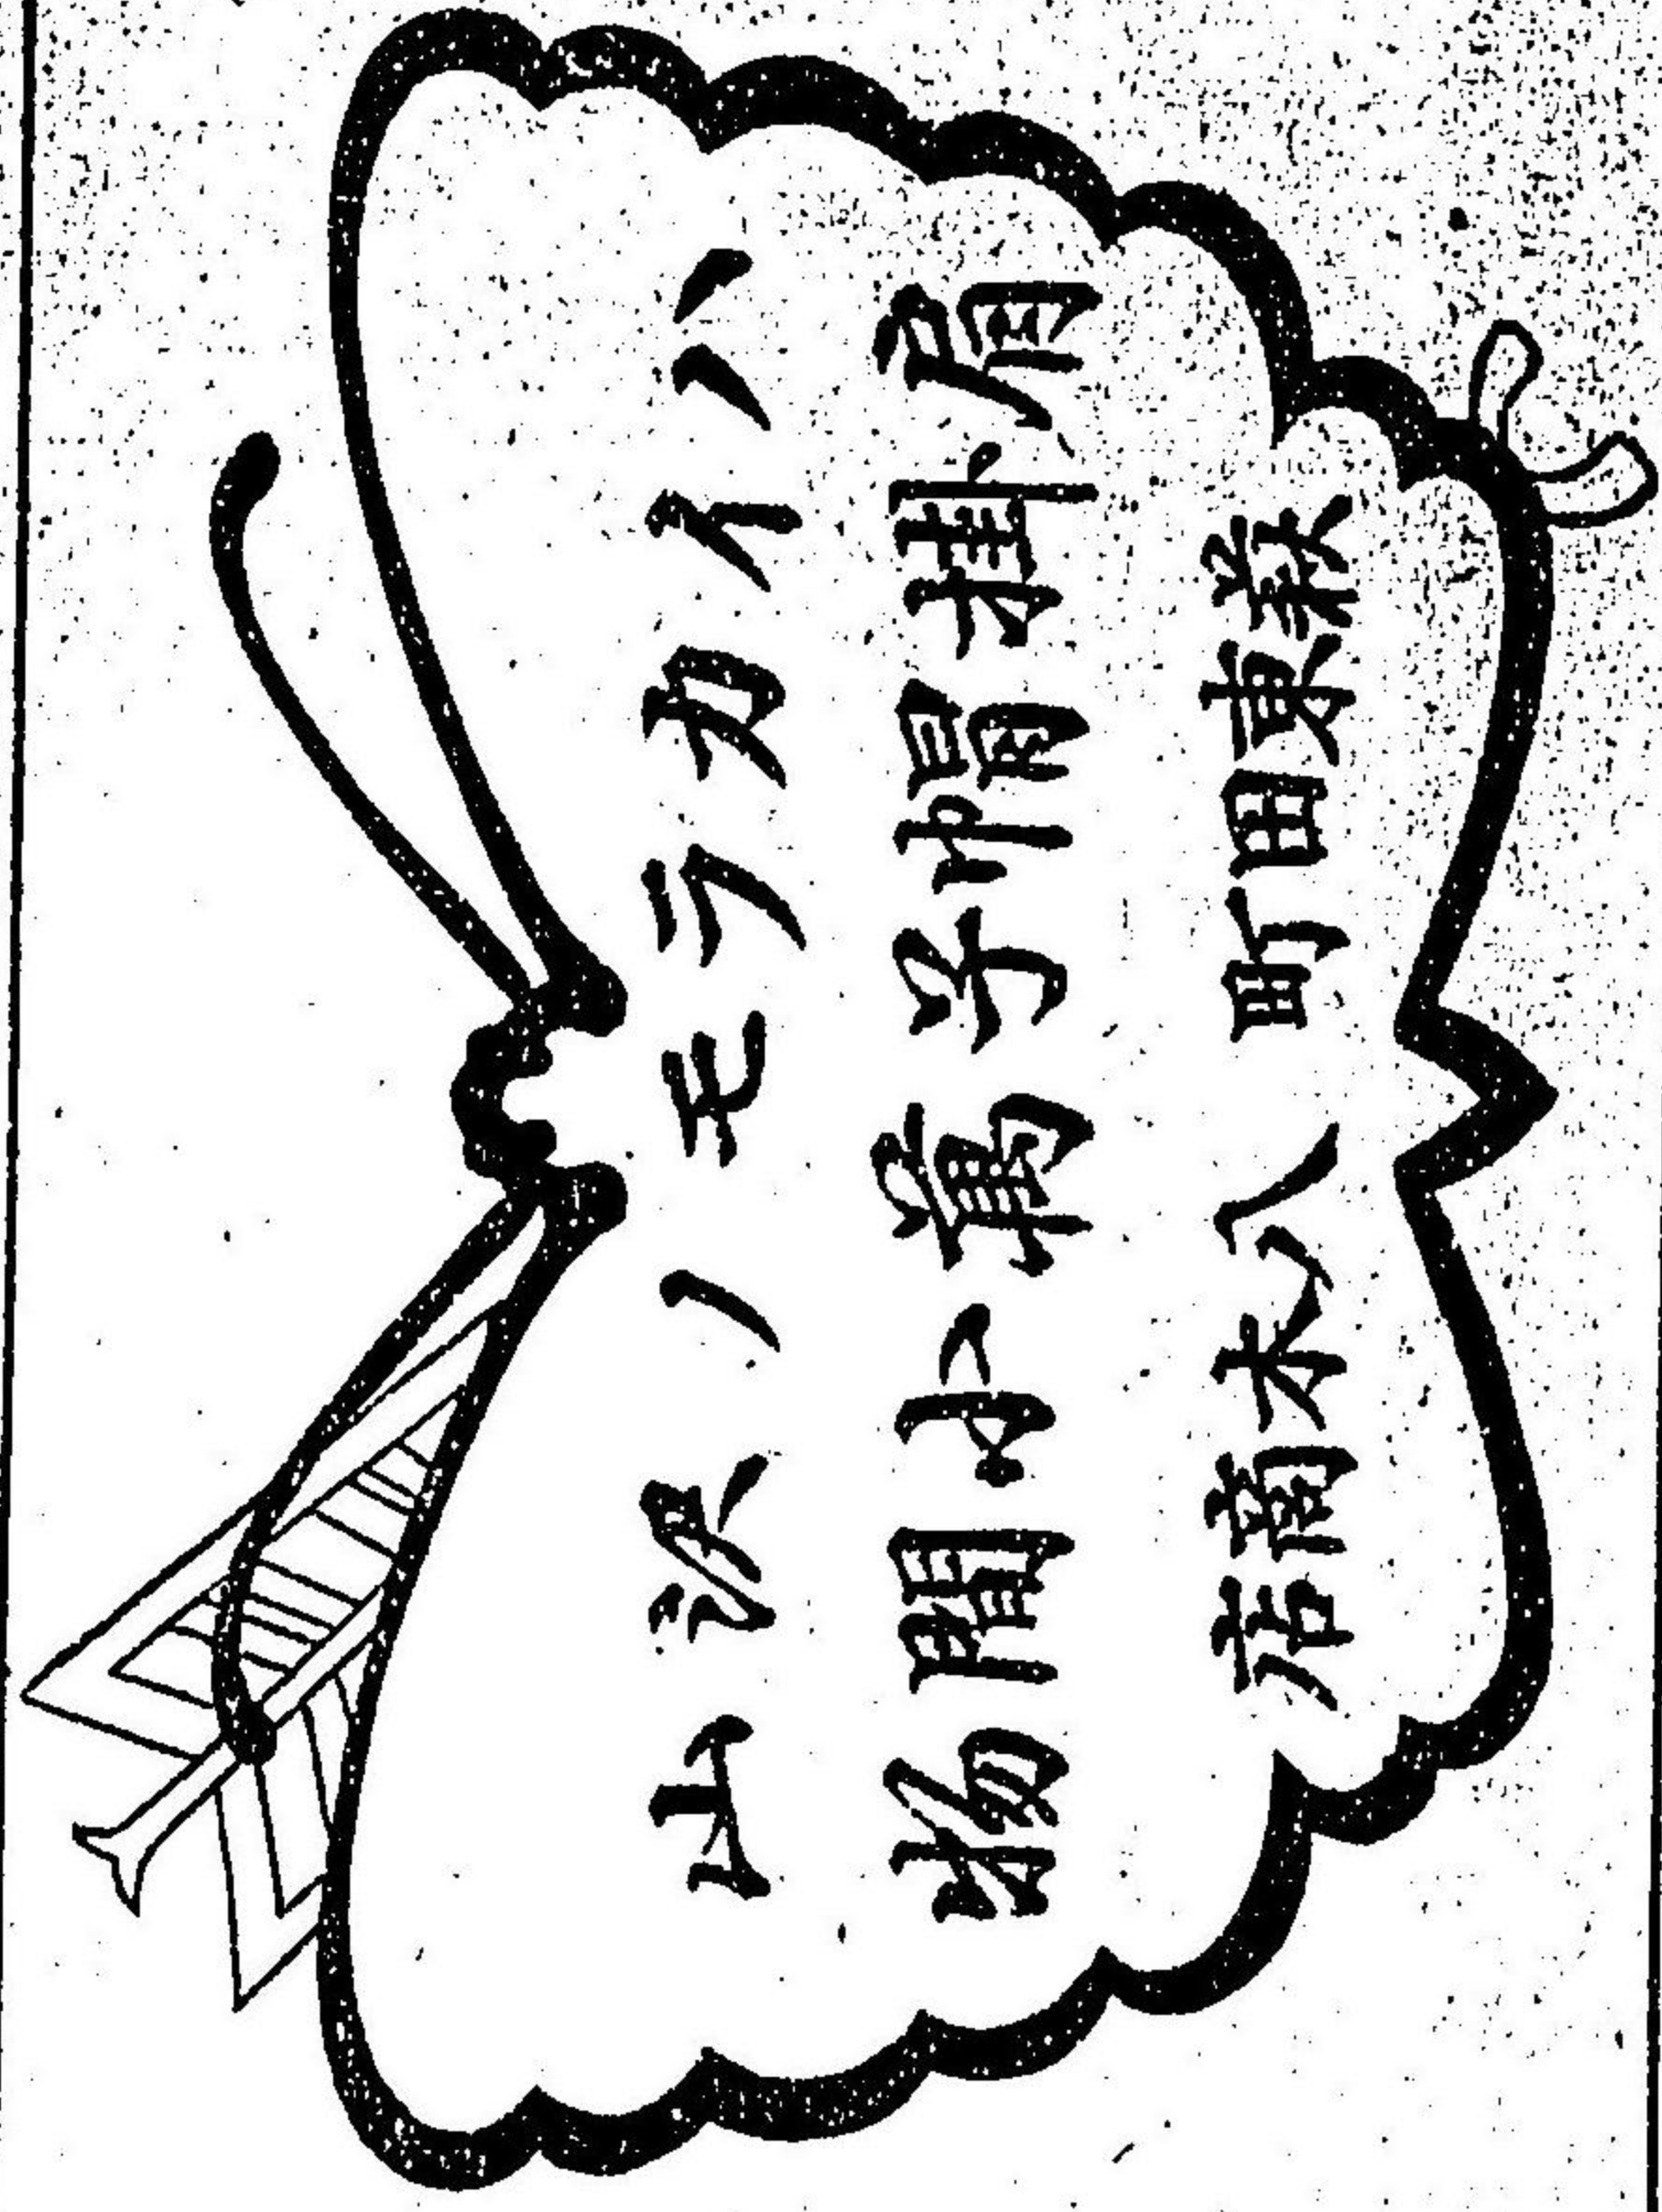 ハイカラモノ沢山
各種帽子萬小間物
東田町 八木商店